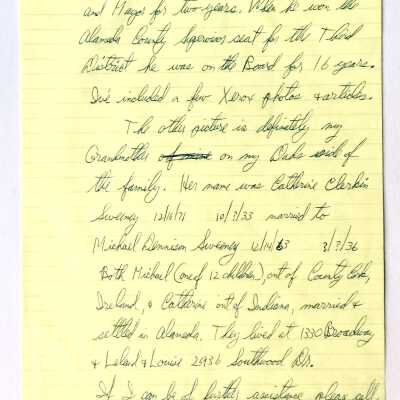 and Mayor for two years. When he won the
Alameda County Supervisor seat for the Third
District he was on the Board for 16 years.
I've included a few Xerox photos & articles.
The other picture is definitely my
Grandmother on my Dads side of
the family. Her name was Catherine Clerkin
Sweeney 10/3/35 married to
Michael Dennison Sweeney 3/3/36
Both Michael (one of 12 children), out of County Cork,
Ireland, & Catherine out of Indiana, married &
settled in Alameda. They lived at 1330 Broadway
& Leland & Louise 2936 Southwood Dr.
If I can be of further assistance please call